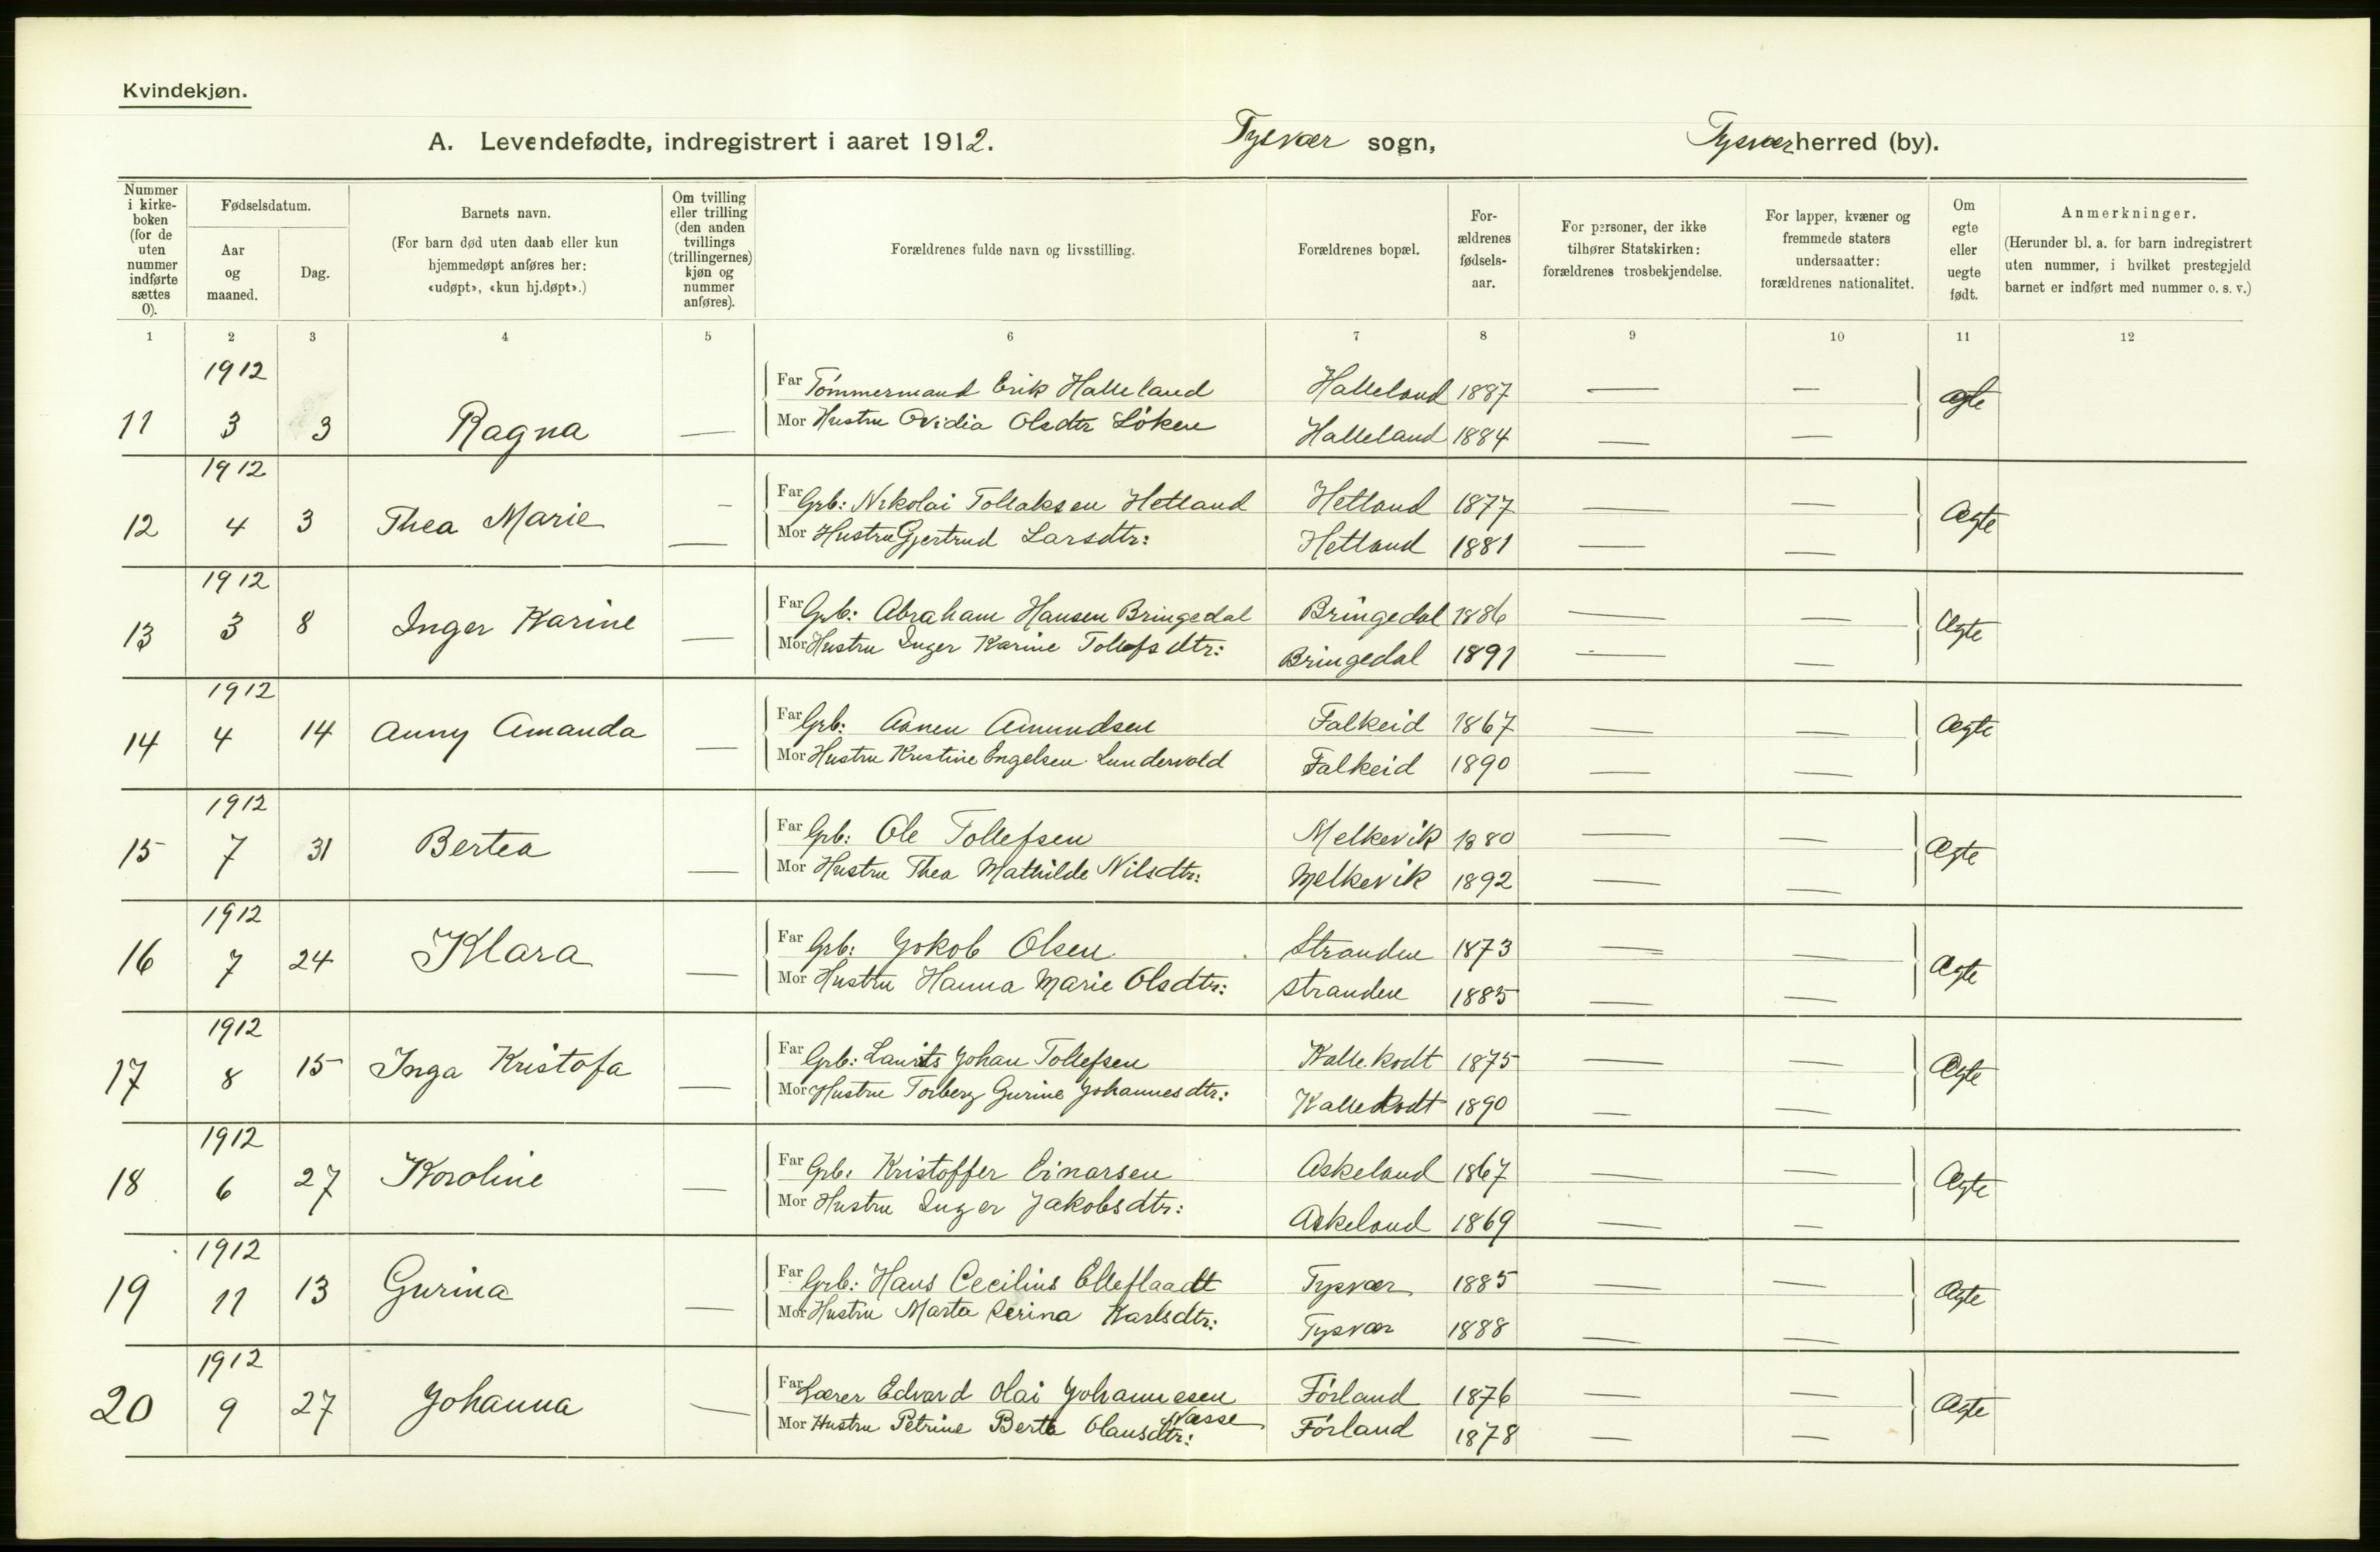 Kvindekjøn.
A. Levendefødte, indregistrert i aaret 1912. Tysvær sogn, Tysvær herred (by).
Nummer i kirke-boken (for de uten nummer indførte sættes 0).
Fødselsdatum.
Aar og maaned.
Dag.
Barnets navn.
(For barn død uten daab eller kun hjemmedøpt anføres her: «udøpt», «kun hj.døpt».)
Om tvilling eller trilling (den anden tvillings (trillingernes) kjøn og nummer anføres).
Forældrenes fulde navn og livsstilling.
Forældrenes bopæl.
For-ældrenes fødsels-aar.
For personer, der ikke tilhører Statskirken: forældrenes trosbekjendelse.
For lapper, kvæner og fremmede staters undersaatter: forældrenes nationalitet.
Om egte eller uegte født.
Anmerkninger.
(Herunder bl. a. for barn indregistrert uten nummer, i hvilket prestegjeld barnet er indført med nummer o. s. v.)
1 2 3 4 5 6 7 8 9 10 11 12
1912
Far Tømmermand Erik Halleland Halleland 1887 — —
11 3 3 Ragna — Mor Hustru Ovidia Olsdtr Løken Halleland 1884 — — Ægte
1912
Far Grb: Nikolai Tollaksen Hetland Hetland 1877 — —
12 4 3 Thea Marie — Mor Hustru Gjertrud Larsdtr: Hetland 1881 — — Ægte
1912
Far Grb: Abraham Hansen Bringedal Bringedal 1886 — —
13 3 8 Inger Karine — Mor Hustru Inger Karine Tollefsdtr: Bringedal 1891 — — Ægte
1912
Far Grb: Aanen Amundsen Falkeid 1867 — —
14 4 14 Anny Amanda — Mor Hustru Kristine Engelsen Lundervold Falkeid 1890 — — Ægte
1912
Far Grb: Ole Tollefsen Melkevik 1880 — —
15 7 31 Bertea — Mor Hustru Thea Mathilde Nilsdtr: Melkevik 1892 — — Ægte
1912
Far Grb: Jokob Olsen Stranden 1873 — —
16 7 24 Klara — Mor Hustru Hanna Marie Olsdtr: Stranden 1885 — — Ægte
1912
Far Grb: Laurits Johan Tollefsen Kallekodt 1875 — —
17 8 15 Inga Kristofa — Mor Hustru Torberg Gurine Johannesdtr: Kallekodt 1890 — — Ægte
1912
Far Grb: Kristoffer Einarsen Askeland 1867 — —
18 6 27 Karoline — Mor Hustru Inger Jakobsdtr: Askeland 1869 — — Ægte
1912
Far Grb: Hans Cecilius Elleflaadt Tysvær 1885 — —
19 11 13 Gurina — Mor Hustru Marta Serina Karlsdtr: Tysvær 1888 — — Ægte
1912
Far Lærer Edvard Olai Johannesen Førland 1876 — —
Næsse
20 9 27 Johanna — Mor Hustru Petrine Berta Olausdtr: Førland 1878 — — Ægte